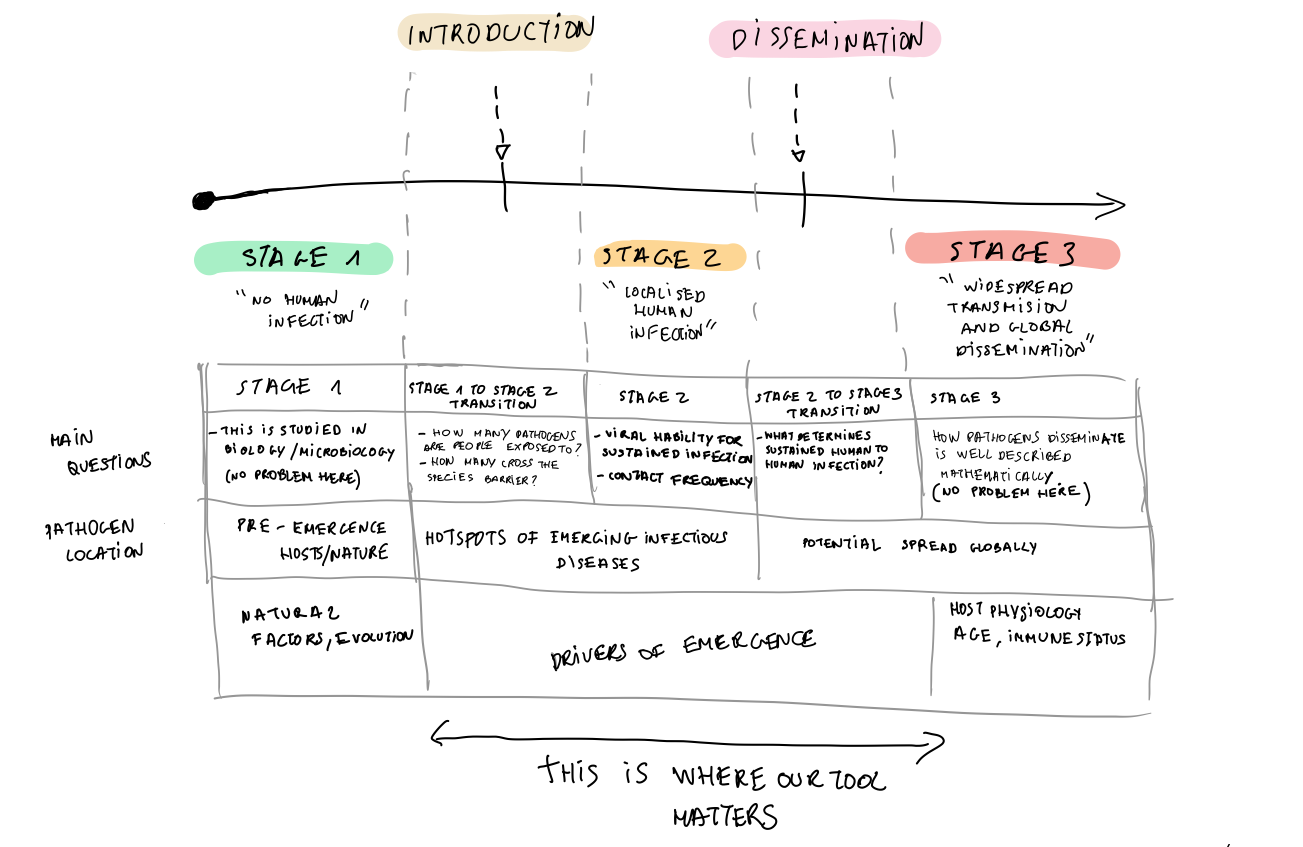 INTRODUCTION
DISSEMINATION
STAGE 1
STAGE 2
STAGE 3
"NO HUMAN
INFECTION"
"LOCALISED
HUMAN
INFECTION"
"WIDESPREAD
TRANSMISION
AND GLOBAL
DISSEMINATION"
STAGE 1
STAGE 1 TO STAGE 2
TRANSITION
STAGE 2
STAGE 2 TO STAGE3
TRANSITION
STAGE 3
MAIN
QUESTIONS
- THIS IS STUDIED IN
BIOLOGY/MICROBIOLOGY
(NO PROBLEM HERE)
- HOW MANY PATHOGENS
ARE PEOPLE EXPOSED TO?
- HOW MANY CROSS THE
SPECIES BARRIER?
- VIRAL HABILITY FOR
SUSTAINED INFECTION
- CONTACT FREQUENCY
- WHAT DETERMINES
SUSTAINED HUMAN TO
HUMAN INFECTION?
HOW PATHOGENS DISSEMINATE
IS WELL DESCRIBED
MATHEMATICALLY
(NO PROBLEM HERE)
PATHOGEN
LOCATION
PRE - EMERGENCE
HOSTS/NATURE
HOTSPOTS OF EMERGING INFECTIOUS
DISEASES
POTENTIAL SPREAD GLOBALLY
NATURAL
FACTORS, EVOLUTION
DRIVERS OF EMERGENCE
HOST PHYSIOLOGY
AGE, IMMUNE STATUS
THIS IS WHERE OUR TOOL
MATTERS